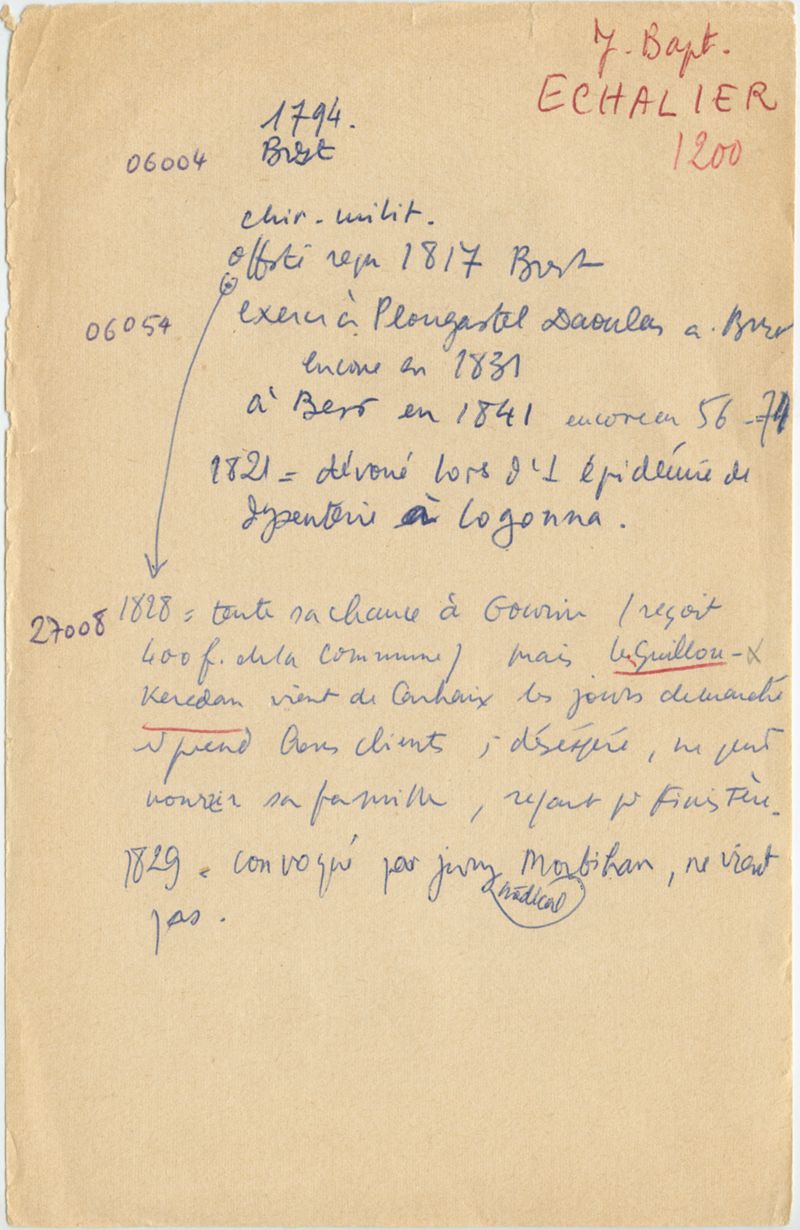 J. Bapt.
ECHALIER
1200
1794.
06004 Brest
chir. milit.
off. sté reçu 1817 Brest
06054 exerce à Plougastel Daoulas a. Brest
encore en 1831
à Brest en 1841 encore en 56 - 71
1821 = dévoué lors d'1 épidémie de
dysenterie à Logonna.
27008 1828 = tente sa chance à Gourin (reçoit
400 f. de la commune) mais Le Guillou - X
Keredan vient de Carhaix les jours de marché
et prend bons clients ; désespéré, ne peut
nourrir sa famille, repart pr Finistère.
1829 = convoqué par jury Morbihan, ne vient
médical
pas.